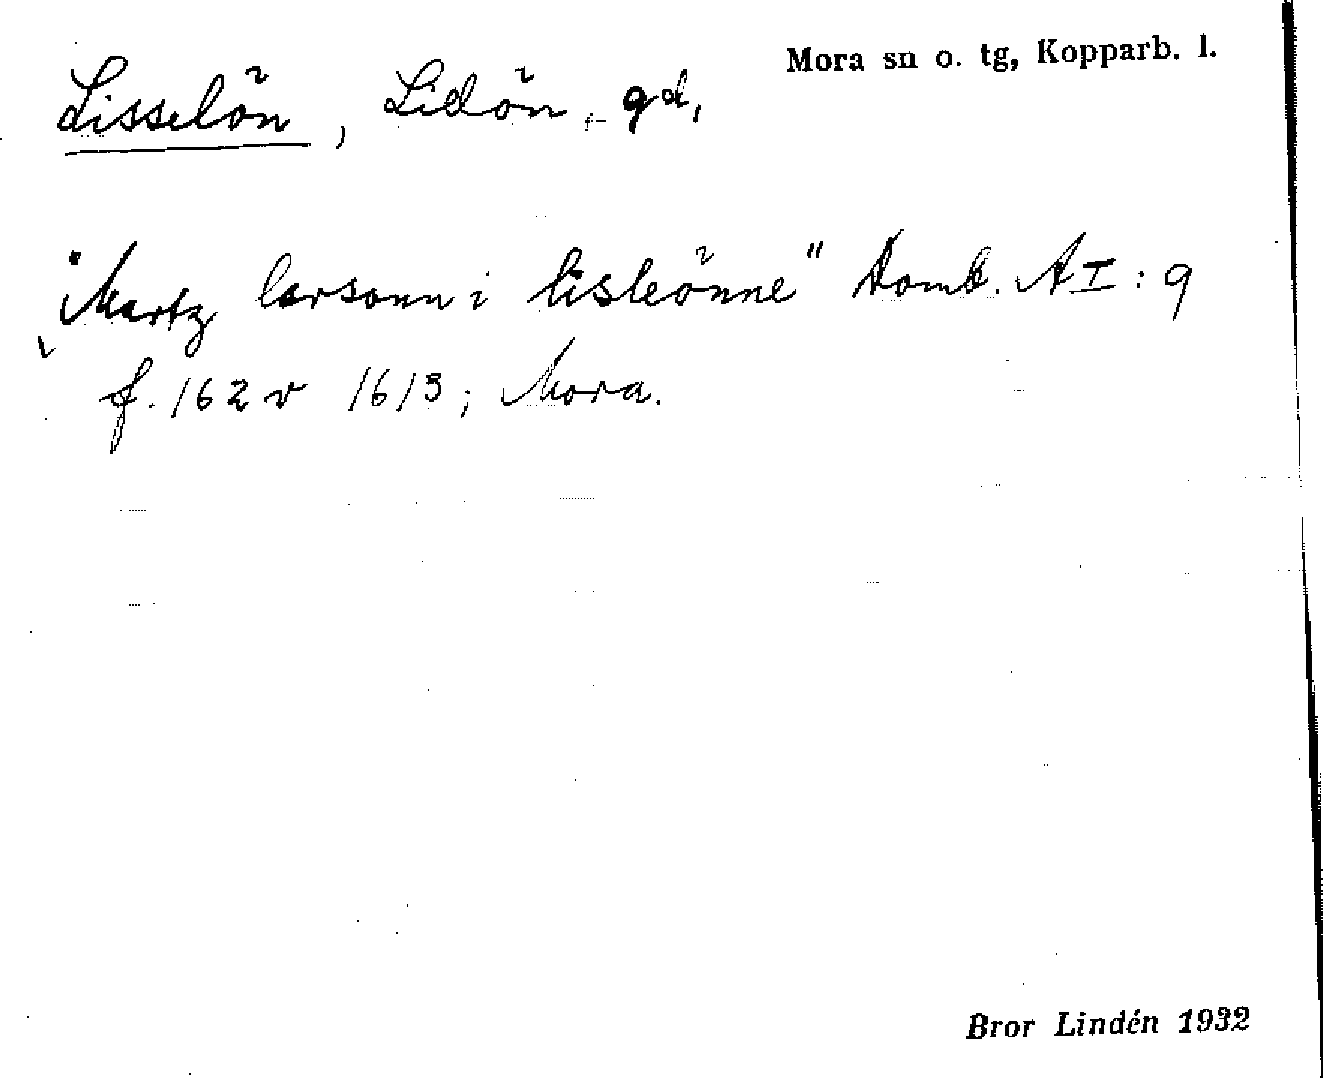 Mora sn o. tg, Kopparb. l.
Lisselön, Lidön, gd,
"Martz larsonn i lisleönne" Domb. A I : 9
f. 162 v 1613; Mora.
Bror Lindén 1932